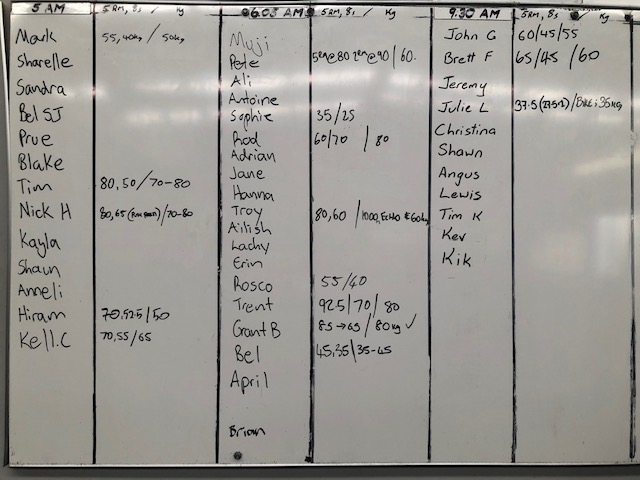 5 AM 5RM, 8s / Kg
Mark 55, 40kg / 50kg
Sharelle
Sandra
Bel SJ
Prue
Blake
Tim 80, 50/70-80
Nick H 80, 65 /70-80
Kayla
Shaun
Anneli
Hiram 70, 52.5/50
Kell.C 70,55/65
6.03 AM 5RM, 8s / Kg
Muji
Pete 5RM@80 2RM@90/60.
Ali
Antoine
Sophie 35/25
Rod 60/70 /80
Adrian
Jane
Hanna
Troy 80,60 /
Ailish
Lachy
Erin
Rosco 55/40
Trent 92.5/70/80
Grant B 85→65/80kg ✓
Bel 45,35/35-45
April
Brian
9:30 AM 5RM, 8s / Kg
John G 60/45/55
Brett F 65/45 /60
Jeremy
Julie L 37.5
Christina
Shawn
Angus
Lewis
Tim K
Kev
Kik